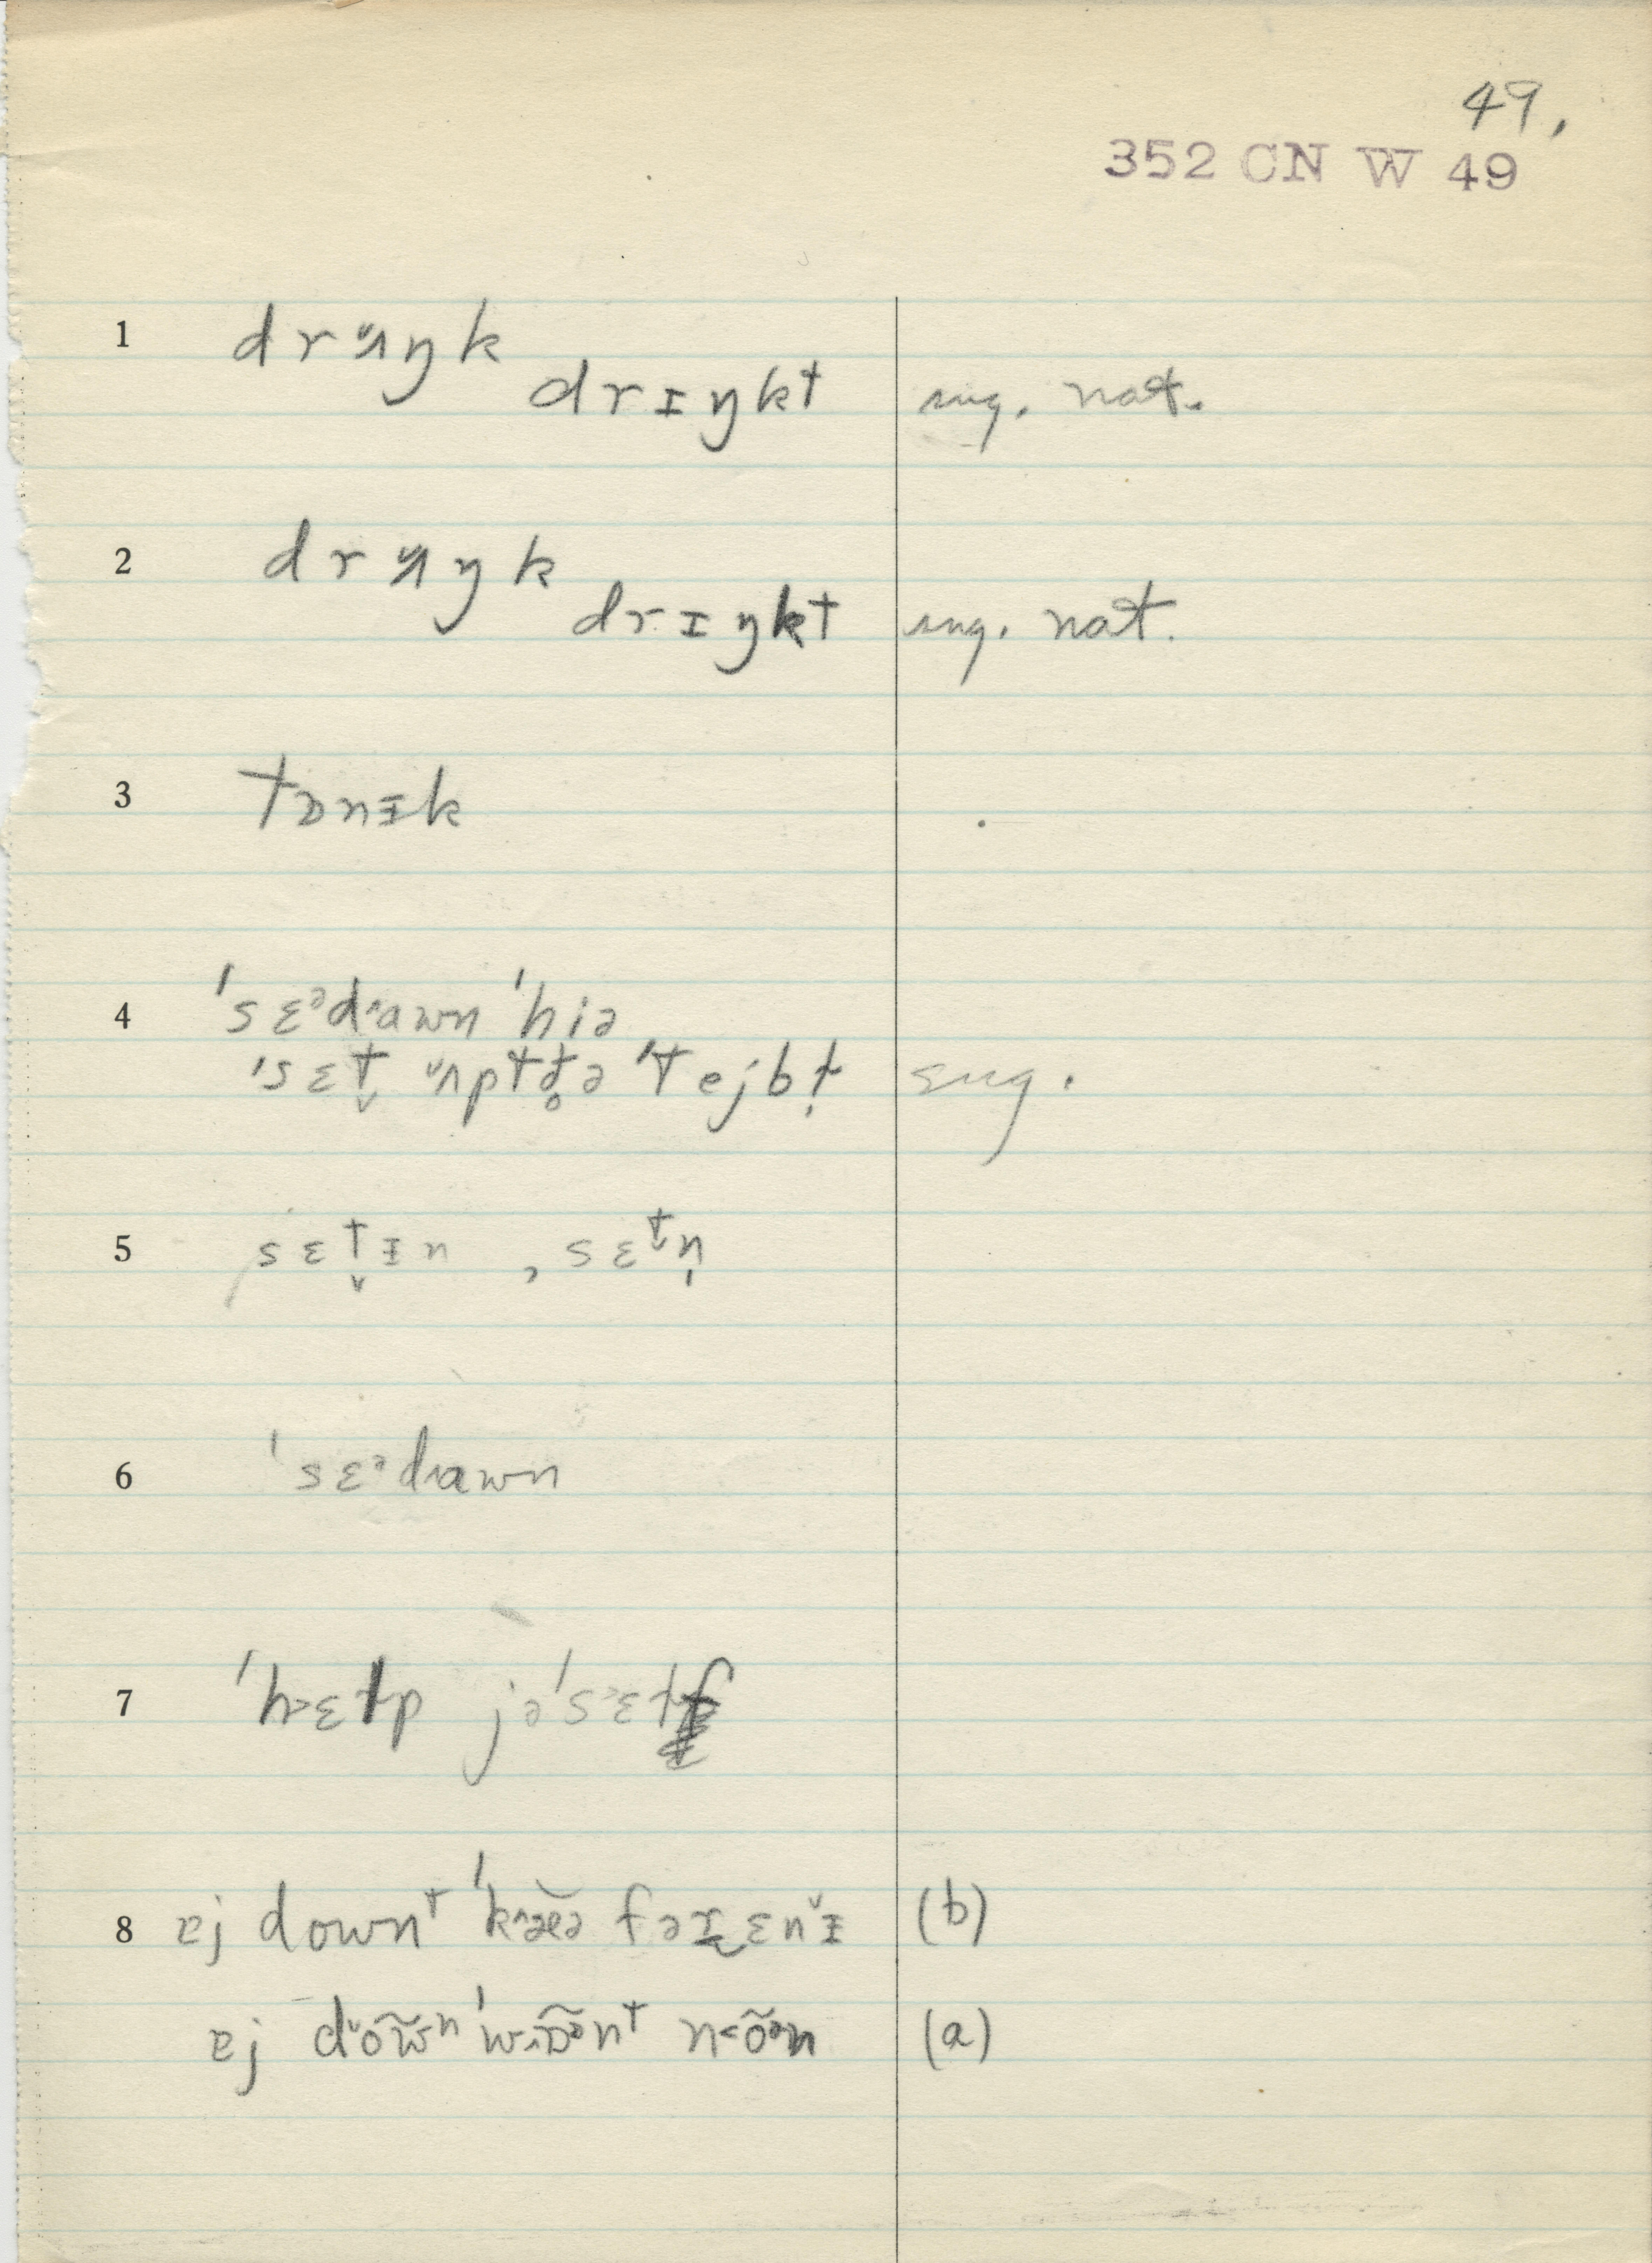 49.
352 CN W 49
1 drʌ̆ŋk
drɪŋkt sug. nat.
2 drʌ̆ŋk
drɪŋkt sug. nat.
3 tɒnɪk
4 ˈsɛᵊdawn ˈhiə
ˈsɛt̬ ʌ̆pt ə ˈtejbɫ̩ sug.
5 sɛt̬ɪn , sɛt̬n̩
6 ˈsɛᵊdawn
7 ˈhɛɫp jəˈsɛɫf
8 ɐj downᵗ ˈkæə fə ɛnɪ̆ (b)
ɐj dõw̃ⁿ ˈwɒ̃ᵊnᵗ nõᵊn (a)